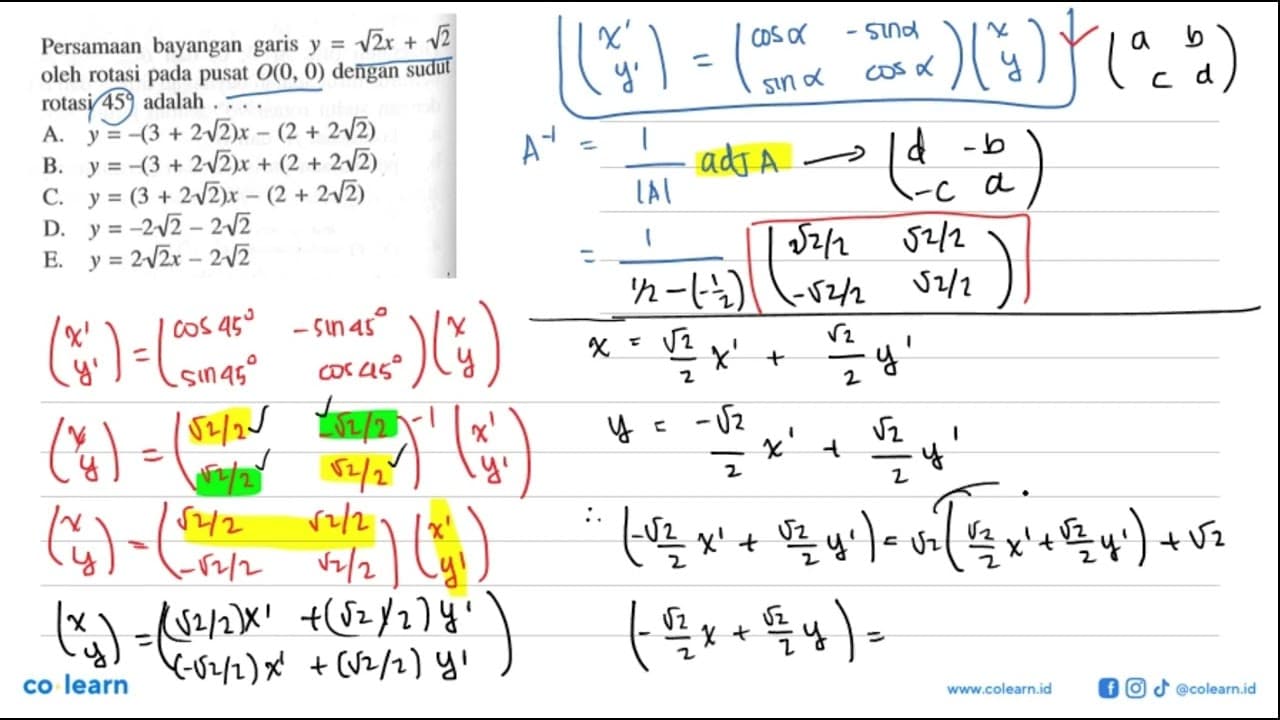 Persamaan bayangan garis y = √2x + √2
oleh rotasi pada pusat O(0, 0) dengan sudut
rotasi 45° adalah . . . .
A. y = –(3 + 2√2)x – (2 + 2√2)
B. y = –(3 + 2√2)x + (2 + 2√2)
C. y = (3 + 2√2)x – (2 + 2√2)
D. y = –2√2 – 2√2
E. y = 2√2x – 2√2
(x' y') = (cos α - sin α sin α cos α)(x y)
(a b c d)
A⁻¹ = 1/|A| adj A → (d -b -c a)
= 1/(1/2 - (-1/2)) (√2/2 √2/2 -√2/2 √2/2)
(x' y') = (cos 45° - sin 45° sin 45° cos 45°)(x y)
(x y) = (√2/2 -√2/2 √2/2 √2/2)⁻¹ (x' y')
(x y) = (√2/2 √2/2 -√2/2 √2/2)(x' y')
(x y) = ((√2/2)x' + (√2/2)y' (-√2/2)x' + (√2/2)y')
x = √2/2 x' + √2/2 y'
y = -√2/2 x' + √2/2 y'
∴ (-√2/2 x' + √2/2 y') = √2(√2/2 x' + √2/2 y') + √2
(-√2/2 x + √2/2 y) =
co·learn
www.colearn.id
@colearn.id